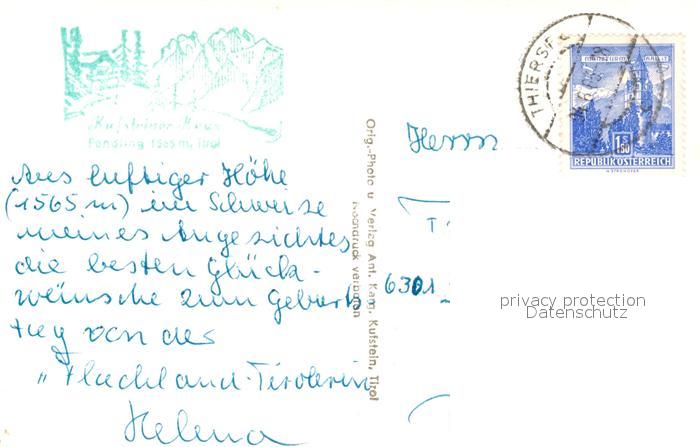 Kufsteiner-Haus
Pendling 1565 m, Tirol
Aus luftiger Höhe
(1565 m) im Schweiße
meines Angesichtes
die besten Glück-
wünsche zum Geburts-
tag von der
"Flachland-Tirolerin
Helena
Orig.-Photo u. Verlag Ant. Karg, Kufstein, Tirol
Nachdruck verboten
THIERSEE
1.50
REPUBLIK ÖSTERREICH
Herrn
T
6301
privacy protection
Datenschutz